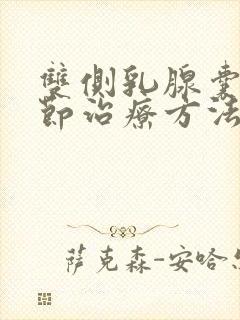 雙側乳腺囊
節治療方法
薩克森-安哈